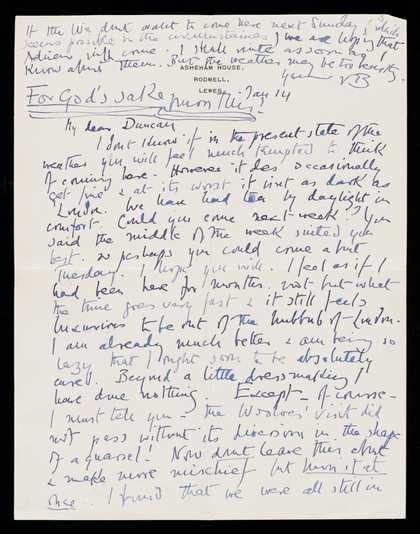 If the W.s dont want to come here next Sunday (which
seems possible in the circumstances) we are hoping that
Adrian will come. I shall write as soon as I
know about them. But the weather may be too beastly.
Your VB
ASHEHAM HOUSE,
RODMELL,
LEWES.
For God's sake burn this! Jan 14
My dear Duncan
I dont know if in the present state of the
weather you will feel much tempted to think
of coming here. However it does occasionally
get fine & at its worst it isnt as dark as
London. We have had tea by daylight in
comfort. Could you come next week? You
said the middle of the week suited you
best. So perhaps you could come about
Tuesday. I hope you will. I feel as if I
had been here for months. Not but what
the time goes very fast & it still feels
luxurious to be out of the hubbub of London.
I am already much better & am being so
lazy that I ought soon to be absolutely
cured. Beyond a little dressmaking I
have done nothing. Except - of course -
I must tell you - the Woolves' visit did
not pass without its diversion in the shape
of a quarrel! Now dont leave this about
& make more mischief but burn it at
once. I found that we were all still in